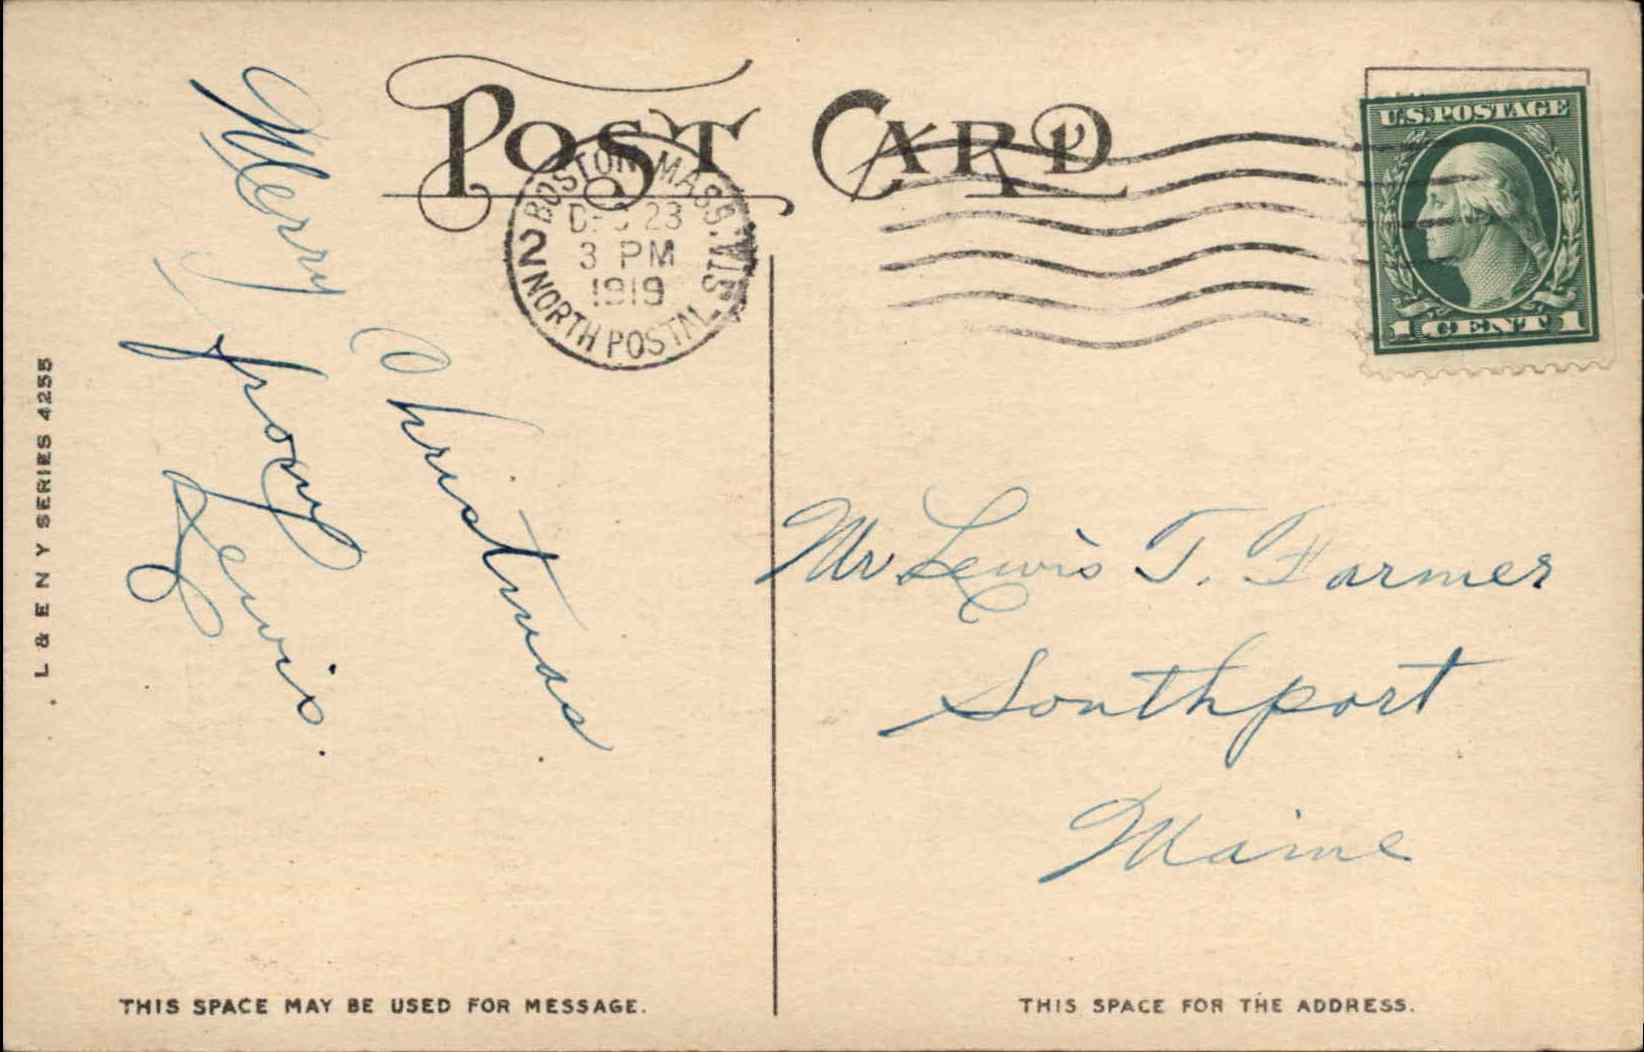 POST CARD
BOSTON, MASS.
DEC 23
3 PM
1919
2
NORTH POSTAL STA.
U.S. POSTAGE
1 CENT 1
Merry
Christmas
from
Lewis.
Mr Lewis T. Farmer
Southport
Maine
L & E N Y SERIES 4255
THIS SPACE MAY BE USED FOR MESSAGE.
THIS SPACE FOR THE ADDRESS.